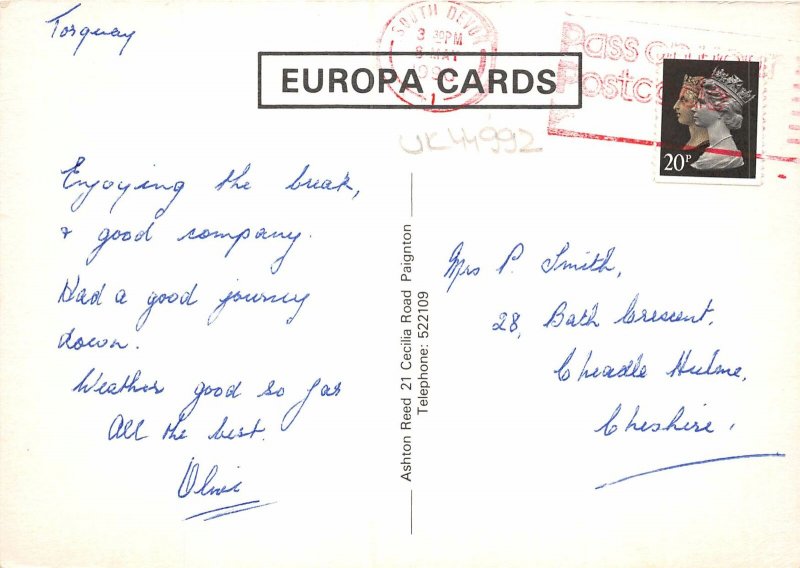 Torquay
SOUTH DEVON
3 30PM
8 MAY
1990
1
Pass on
Postc
EUROPA CARDS
UK44992
20P
Enjoying the break,
& good company.
Had a good journey
down.
Weather good so far
All the best.
Olive
Ashton Reed 21 Cecilia Road Paignton
Telephone: 522109
Mrs P. Smith,
28, Bath Crescent,
Cheadle Hulme,
Cheshire,